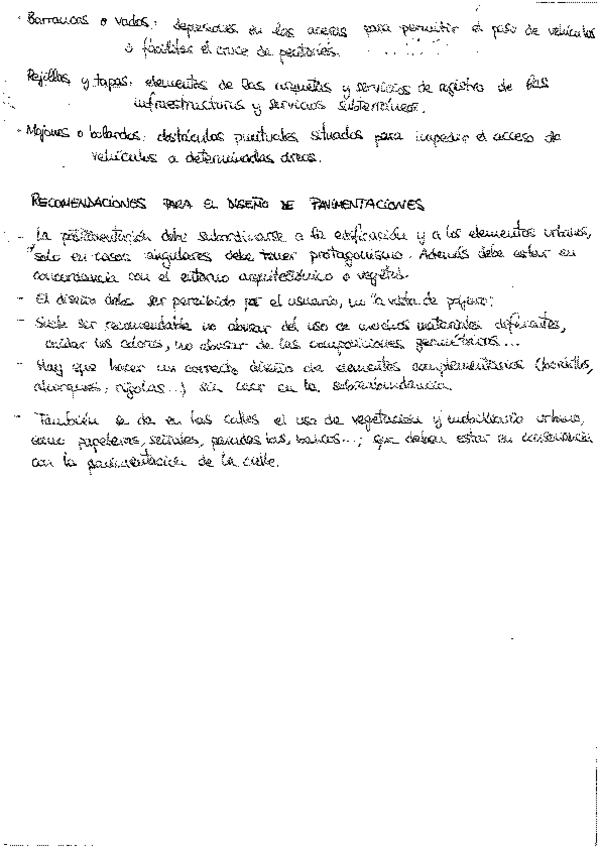 - Barrancas o vados: depresiones en las aceras para permitir el paso de vehículos
o facilitar el cruce de peatones.
Rejillas y tapas: elementos de las arquetas y servicios de registro de las
infraestructuras y servicios subterráneos.
- Mojones o bolardos: obstáculos puntuales situados para impedir el acceso de
vehículos a determinadas áreas.
RECOMENDACIONES PARA EL DISEÑO DE PAVIMENTACIONES
- La pavimentación debe subordinarse a la edificación y a los elementos urbanos,
solo en casos singulares debe tener protagonismo. Además debe estar en
concordancia con el entorno arquitectónico o vegetal.
- El diseño debe ser percibido por el usuario, no "a vista de pájaro".
- Suele ser recomendable no abusar del uso de muchos materiales diferentes,
cuidar los colores, no abusar de las composiciones geométricas...
- Hay que hacer un correcto diseño de elementos complementarios (bordillos,
alcorques, rigolas...) sin caer en la sobreabundancia.
- También se da en las calles el uso de vegetación y mobiliario urbano,
como papeleras, señales, paradas bus, bancos...; que deben estar en consonancia
con la pavimentación de la calle.